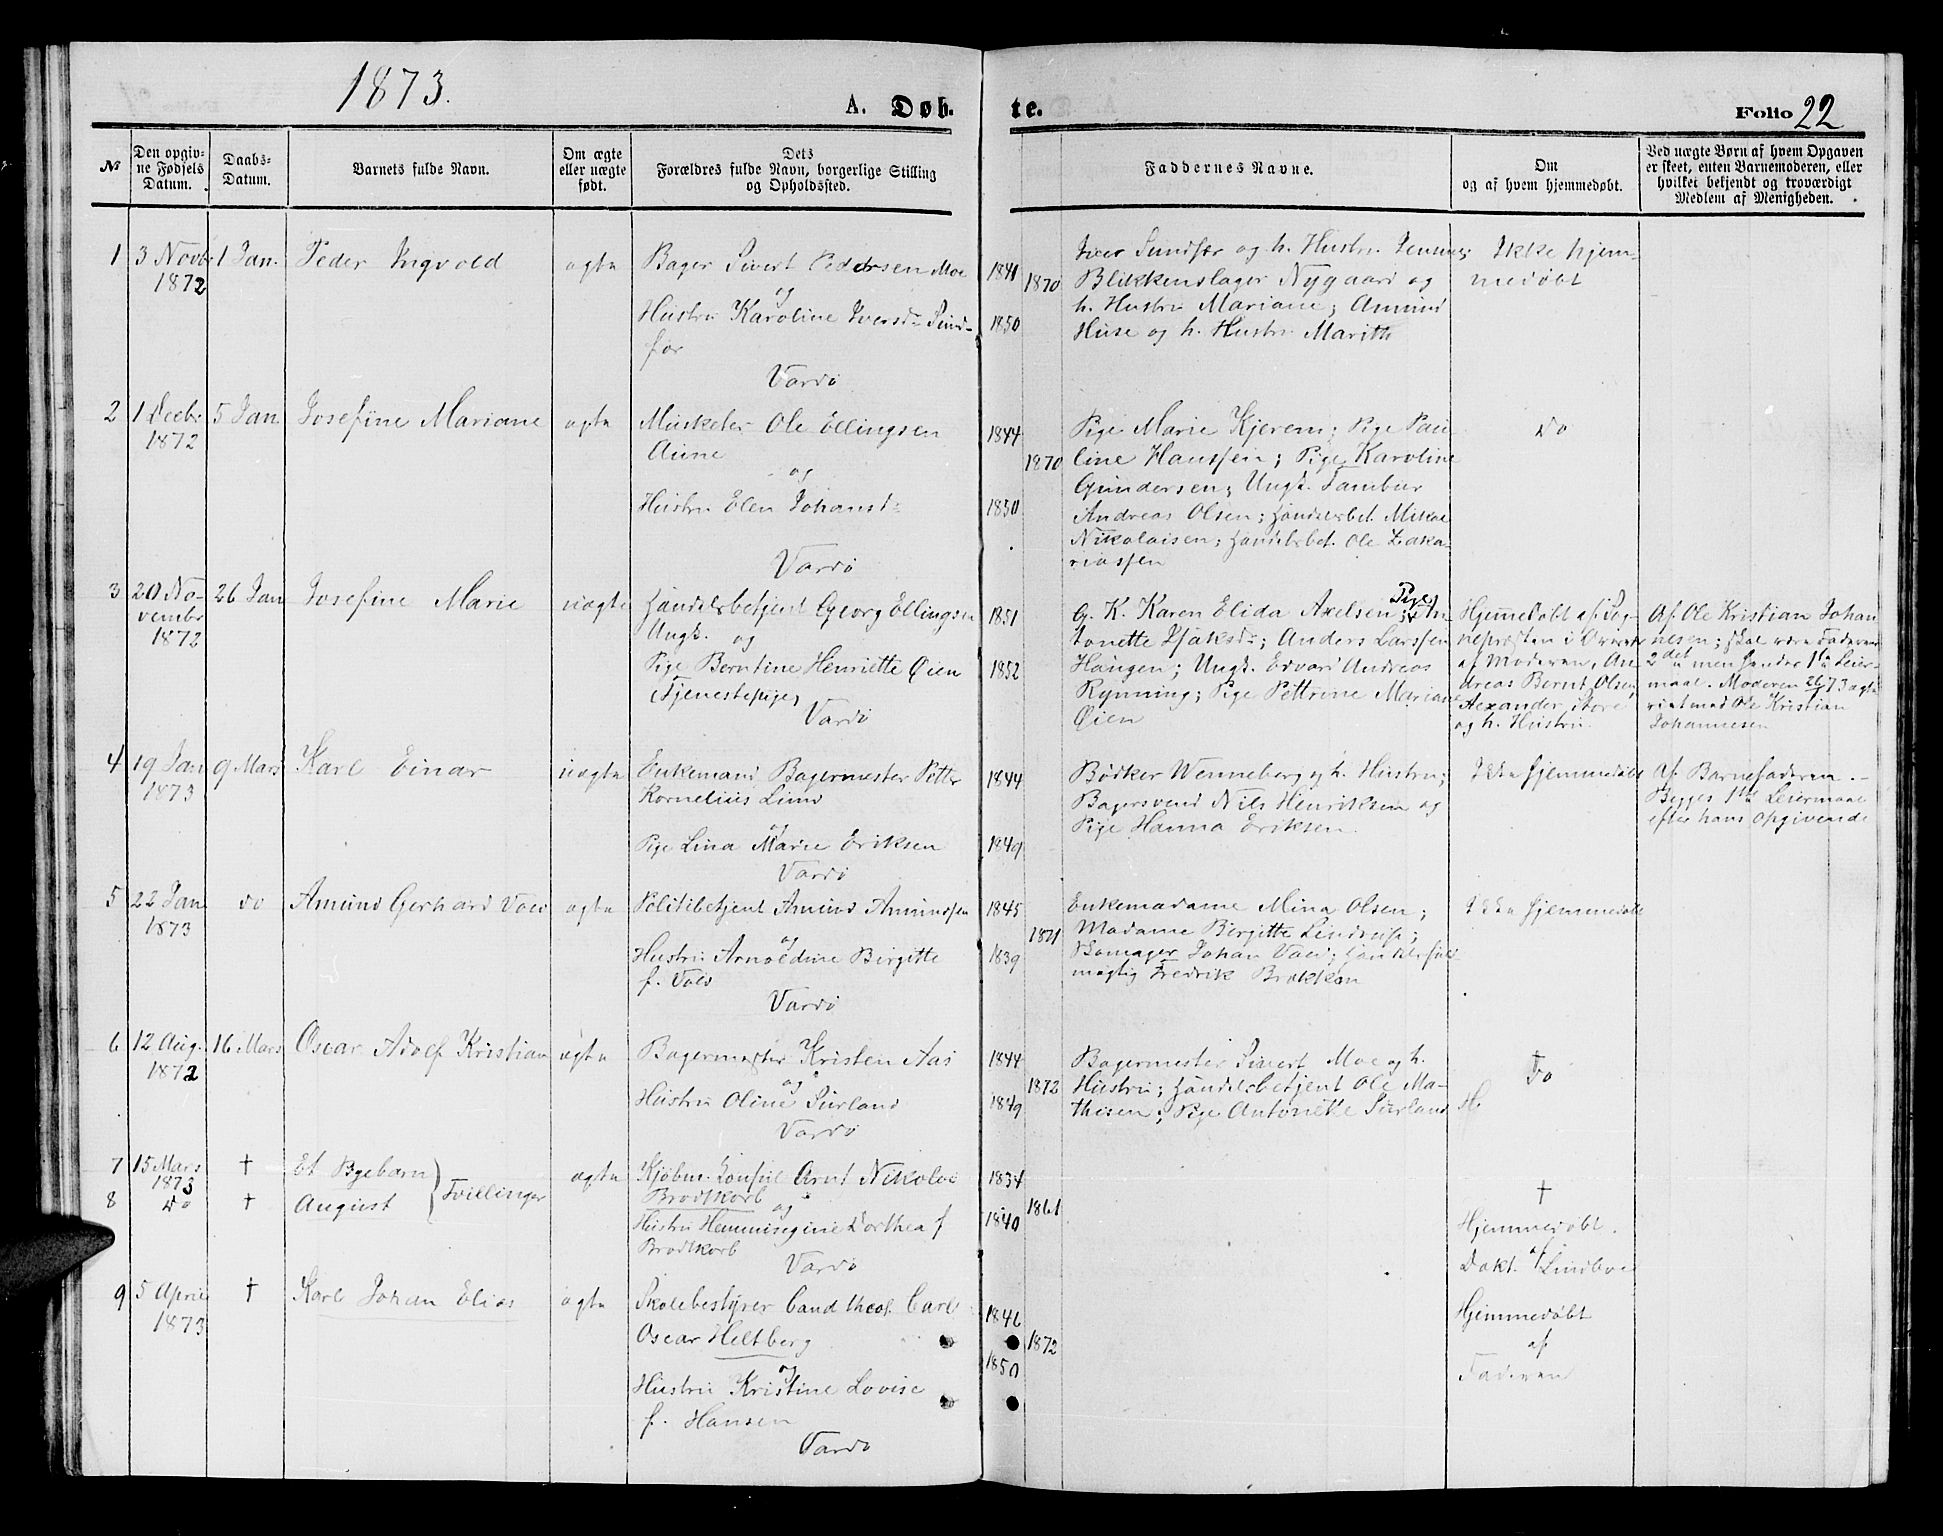 1873.
A. Døb-
te.
Folio 22
№
Den opgiv-
ne Fødsels
Datum.
Daabs-
Datum.
Barnets fulde Navn.
Om ægte
eller uægte
født.
Dets
Forældres fulde Navn, borgerlige Stilling
og Opholdssted.
Faddernes Navne.
Om
og af hvem hjemmedøbt.
Ved uægte Børn af hvem Opgaven
er skeet, enten Barnemoderen, eller
hvilket bekjendt og troværdigt
Medlem af Menigheden.
1
3 Novbr
1872
1 Jan.
Peder Ingvold
ægte
Bager Sivert Pedersen Moe
og
Hustru Karoline Iversd. Sund-
før
Vardø
1841
1850
1870
Iver Sundfør og h. Hustru
Blikkenslager Nygaard og
h. Hustru Mariane; Amund
Huse og h. Hustru Marith
Ikke hjem-
medøbt
2
1 Decbr
1872
5 Jan
Josefine Mariane
ægte
Musketer Ole Ellingsen
Aune
og
Hustru Elen Johansd.
Vardø
1844
1850
1870
Pige Marie Kjerem; Pige Pau
line Hanssen; Pige Karoline
Gundersen; Ungk. Tambur
Andreas Olsen; Handelsbet. Mikal
Nikolaisen; Handelsbet. Ole Zaka-
riassen
Do
3
20 No-
vembr
1872
26 Jan
Josefine Marie
uægte
Handelsbetjent Georg Ellingsen
Ungk. og
Pige Berntine Henriette Øien
(Tjenestepige)
Vardø
1851
1852
G. K. Karen Elida Axelsen; Pige An
tonette Isaksd.; Anders Larssen
Haugen; Ungk. Edvard Andreas
Rynning; Pige Pettrine Mariane
Øien
Hjemmedøbt af Sog-
nepræsten i
af Moderen, An
dreas Bernt Olsen,
Alexander
og h. Hustru.
Af Ole Kristian Johan
nesen; skal være Faderens
2det men hendes 1ste Leier-
maal. Moderen 26/1 73 ægte
viet med Ole Kristian
Johannesen
4
19 Jan
1873
9 Mars
Karl Einar
uægte
Enkemand Bagermester Petter
Kornelius Lund
og
Pige Lina Marie Eriksen
Vardø
1844
1849
Bødker Wenneberg og h. Hustru;
Bagersvend Nils Henriksen og
Pige Hanna Eriksen.
Ikke hjemmedøbt
Af Barnefaderen.
Begges 1ste Leiermaal
efter hans Opgivende
5
22 Jan
1873
do
Amund Gerhard Vold
ægte
Politibetjent Amund Amundsen
og
Hustru Arnoldine Birgitte
f. Vold
Vardø
1845
1839
1871
Enkemadame Mina Olsen;
Madame Birgitte Lindrup;
Skomager Johan Vold; Handelsfuld
mægtig Fredrik Brækkan
Ikke hjemmedøbt
6
12 Aug.
1872
16 Mars
Oscar Adolf Kristian
ægte
Bagermester Kristen Aas
og
Hustru Oline Surland
Vardø
1844
1849
1872
Bagermester Sivert Moe og h.
Hustru; Handelsbetjent Ole Ma-
thisen; Pige Antonette Surland
Do
H
7
15 Mars
1873
†
Et Pigebarn
Tvillinger
ægte
Kjøbm. Konsul Arnt Nikolai
Brodtkorb
og
Hustru Hemmigine Dorthea f
Brodtkorb
Vardø
1834
1840
1861
†
8
Do
†
August
Hjemmedøbt.
af
Dokt. Lindboe
9
5 April
1873
†
Karl Johan Elias
ægte
Skolebestyrer Cand theol. Carl
Oscar Heltberg
og
Hustru Kristine Lovise
f. Hansen
Vardø
1846
1850
1872
Hjemmedøbt
af
Faderen